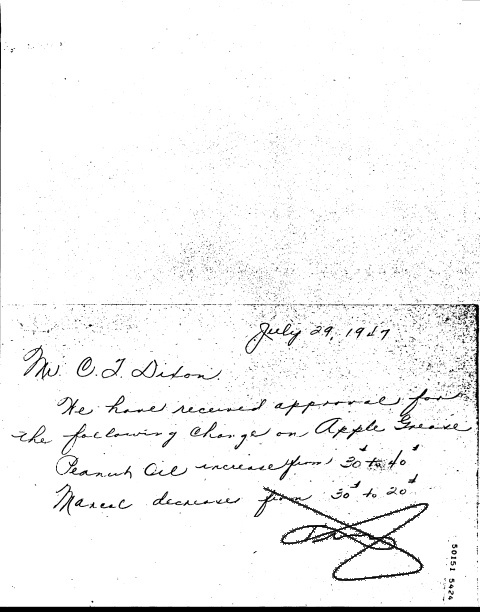 July 29, 1947
Mr. C. T. Dixon
We have received approval for
the following change on Apple Grease
Peanut Oil increase from 30# to 40#
Marcol decreases from 30# to 20#
50151 5424